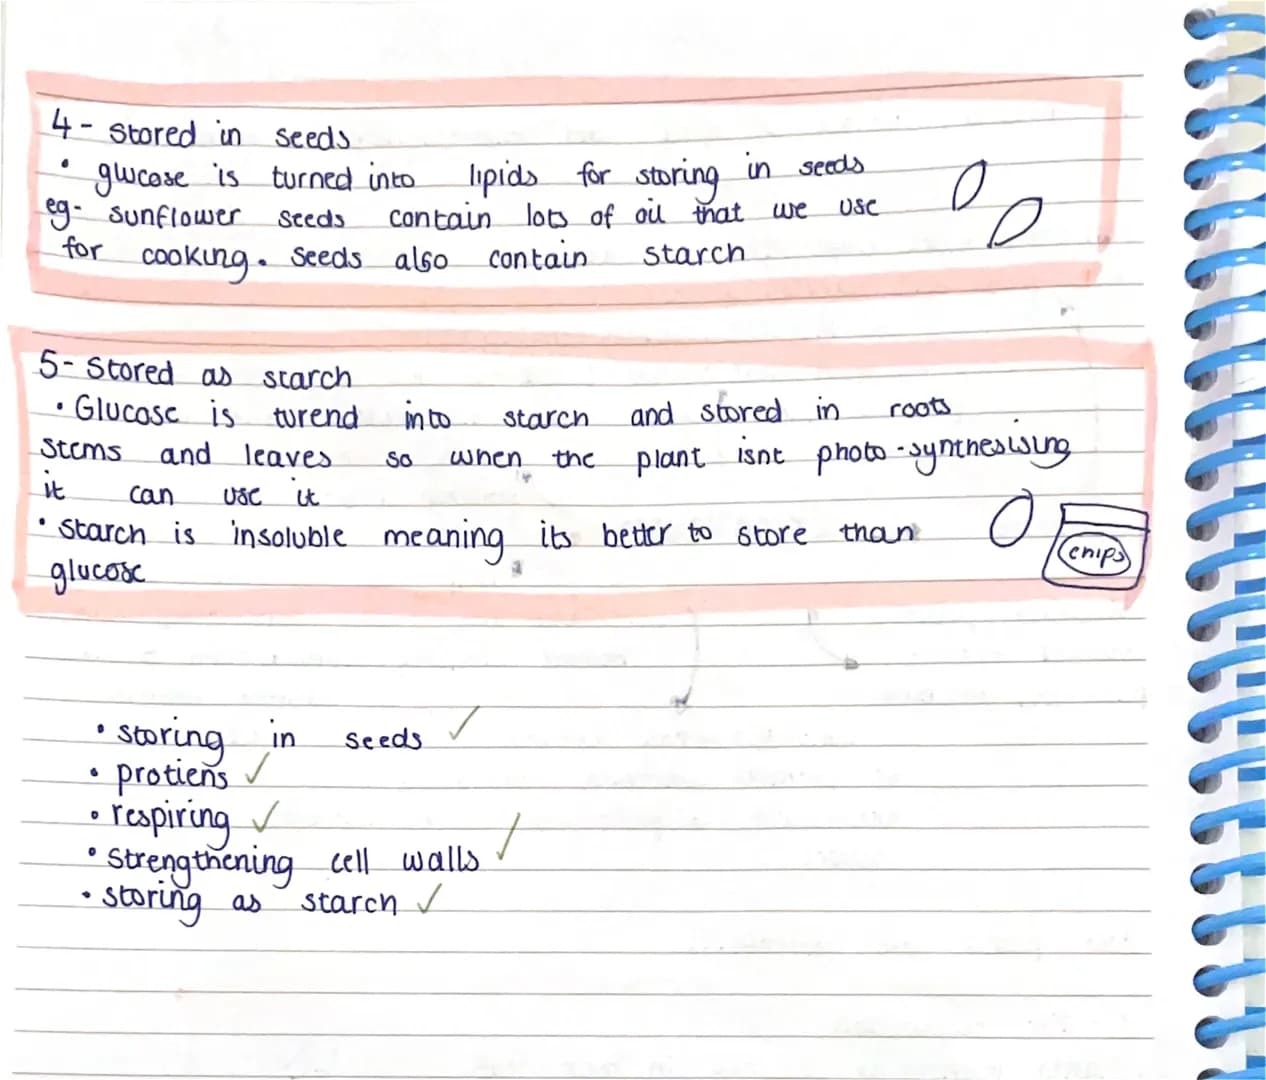 4 - stored in seeds
• glucose is turned into lipids for storing in seeds
eg - sunflower seeds contain lots of oil that we use
for cooking. Seeds also contain starch
5 - Stored as starch
• Glucose is turend into starch and stored in roots
stems and leaves so when the plant isnt photo-synthesising
it can use it
• starch is insoluble meaning its better to store than
glucose
chips
• storing in seeds ✓
• protiens ✓
• respiring ✓
• strengthening cell walls ✓
• storing as starch ✓